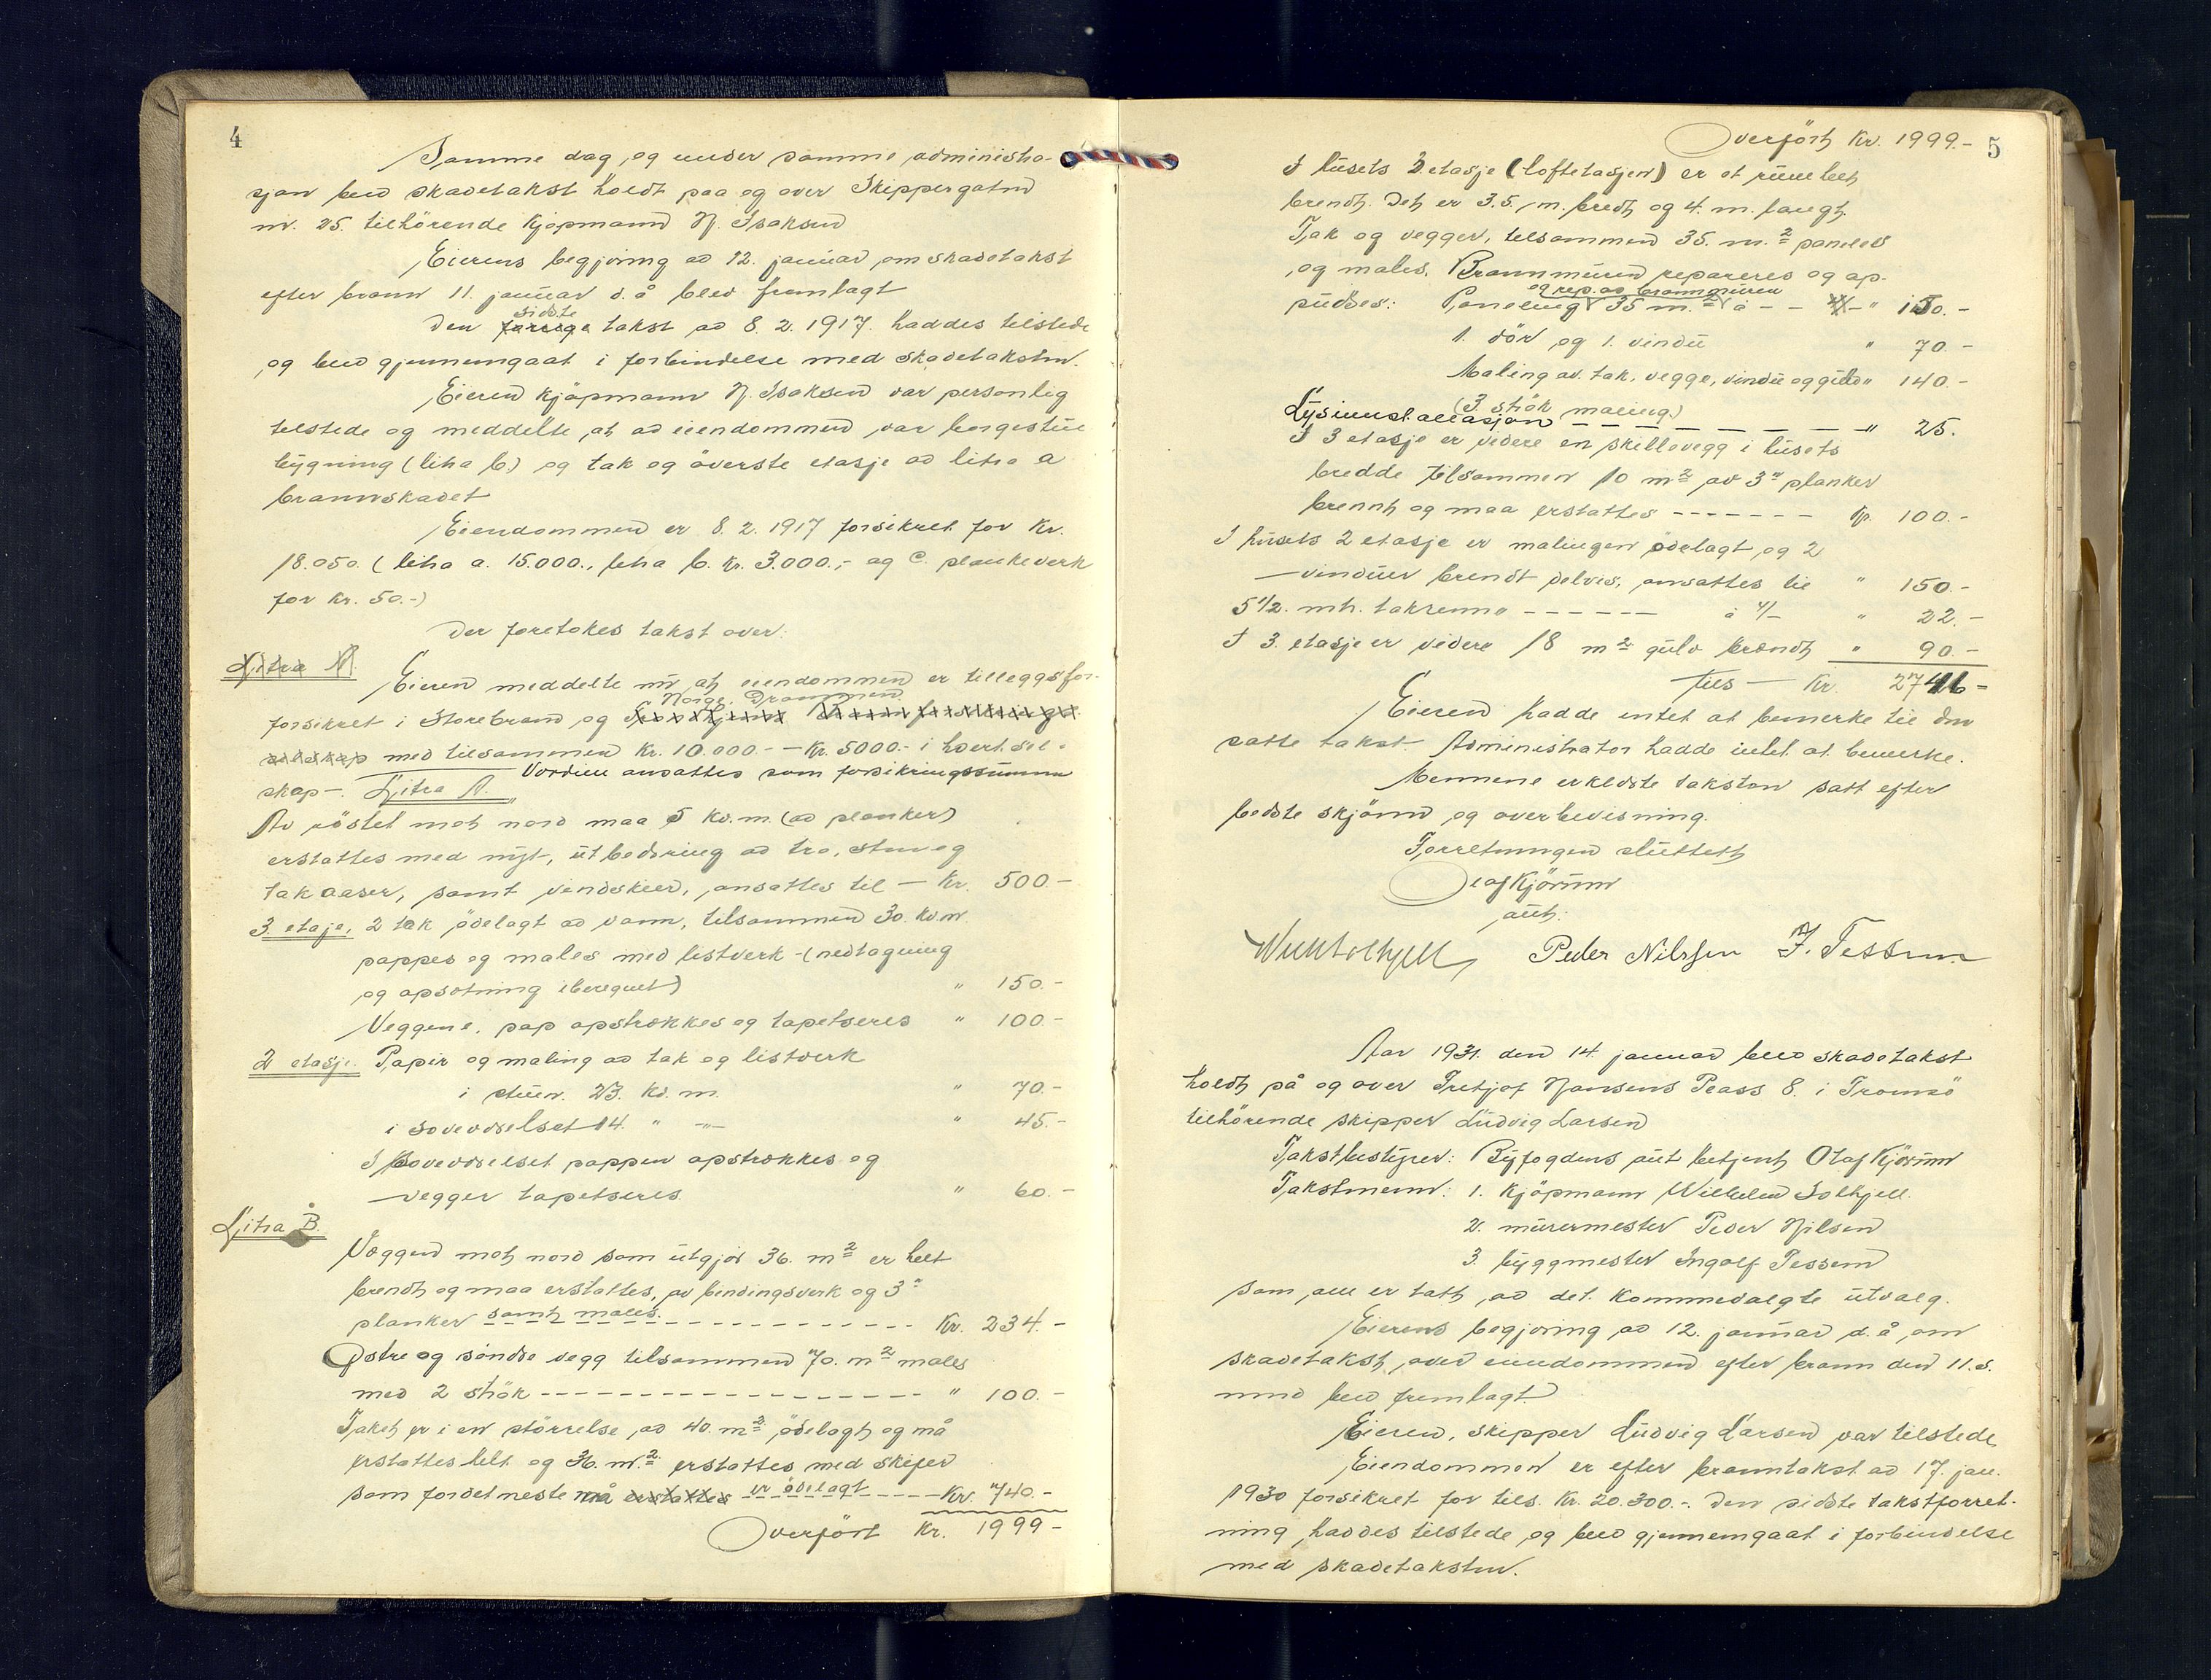 4
Samme dag, og under samme administra-
sjon blev skadetakst holdt paa og over Skippergaten
nr. 25. tilhörende kjøpmann N. Isaksen
Eierens begjæring av 12. januar om skadetakst
efter brann 11. januar d.å blev fremlagt
sidste
Den forrige takst av 8. 2. 1917. haddes tilstede
og blev gjennemgaat i forbindelse med skadetaksten.
Eieren kjöpmann N. Isaksen var personlig
tilstede og meddelte, at av eiendommen var borgestue
bygning (litra b) og tak og överste etasje av litra a
brannskadet
Eiendommen er 8. 2. 1917 forsikret for Kr.
18.050. (litra a. 15.000., litra b. Kr. 3.000,- og C. plankeverk
for Kr. 50.-)
Der foretokes takst over:
Litra A
Eieren meddelte nu at eiendommen er tilleggsfor-
Norge, Drammen
forsikret i Storebrand og
selskap med tilsammen Kr. 10.000.- — Kr. 5000.- i hvert sel-
skap-. Litra A. Verdien ansattes som forsikringssummen
Av röstet mot nord maa 5 kv.m. (av planker)
erstattes med nytt, utbedring av tro, sten og
takaaser, samt vindskier, ansattes til — Kr. 500.-
3. etaje, 2 tak ödelagt av vann, tilsammen 30. kv.m.
pappes og males med listverk - (nedtagning
og opsetning iberegnet) " 150.-
Veggene, pap opstrekkes og tapetseres " 100-
2 etasje. Papir og maling av tak og listverk
i stuen. 23. kv. m. " 70.-
i soveværelset 14. " -"- " 45.-
I soveværelset pappen opstrekkes og
vegger tapetseres. " 60.-
Litra B.
Veggen mot nord som utgjör 36. m² er helt
brendt og maa erstattes, av bindingsverk og 3"
planker samt males. - - - - - Kr. 234.-
Østre og söndre vegg tilsammen 70. m² males
med 2 strök - - - - - - " 100.-
Taket er i en störrelse av 40. m² ödelagt og må
erstattes helt og 36. m² erstattes med skifer
som fordetmeste må erstattes er ödelagt - - - Kr. 740.-
Overfört Kr. 1999-
Overfört Kr. 1999.- 5
I husets 3 etasje (loftetasjen) er et rum helt
brendt. Det er 3.5. m. bredt og 4. m. langt.
Tak og vegger, tilsammen 35. m.² paneles
og males. Brannmuren repareres og op-
og rep. av brannmuren
pudses: Paneling 35 m.² à - - " 150.-
1. dör og 1. vindu " 70.-
Maling av tak, vegge, vindu og gulv " 140.-
(3 strök maling.)
Lysinnstallasjon - - - - - " 25.
I 3 etasje er videre en skillevegg i husets
bredde tilsammen 10 m² av 3" planker
brennt og maa erstattes - - - - - - - kr. 100.-
I husets 2 etasje er malingen ödelagt og 2
vinduer brendt delvis, ansattes til " 150.-
5 1/2. mtr. takrenne - - - - - - à 4/- " 22.-
I 3. etasje er videre 18 m² gulv brendt " 90.-
tils — Kr. 2746-
Eieren hadde intet at bemerke til den
satte takst. Administrator hadde intet at bemerke.
Mennene erklærte taksten satt efter
bedste skjönn og overbevisning.
Forretningen sluttett
Olaf Kjörum
aut.
Wilh Solhjell, Peder Nilssen I. Tessem
Aar 1931. den 14. januar blev skadetakst
holdt på og over Fretjof Nansens Plass 8. i Tromsö
tilhörende skipper Ludvig Larsen
Takstbestyrer: Byfogdens aut betjent Olaf Kjörum
Takstmenn: 1. kjöpmann Wilhelm Solhjell.
2. murermester Peder Nilsen
3. byggmester Ingolf Tessem
som alle er tatt av det kommevalgte utvalg.
Eierens begjæring av 12. januar d.å om
skadetakst over eiendommen efter brann den 11. s.
mnd blev fremlagt.
Eieren, skipper Ludvig Larsen var tilstede
Eiendommen er efter branntakst av 17. jan.
1930 forsikret for tils. Kr. 20.300.-. Den sidste takstforret-
ning haddes tilstede og blev gjennemgaat i forbindelse
med skadetaksten.